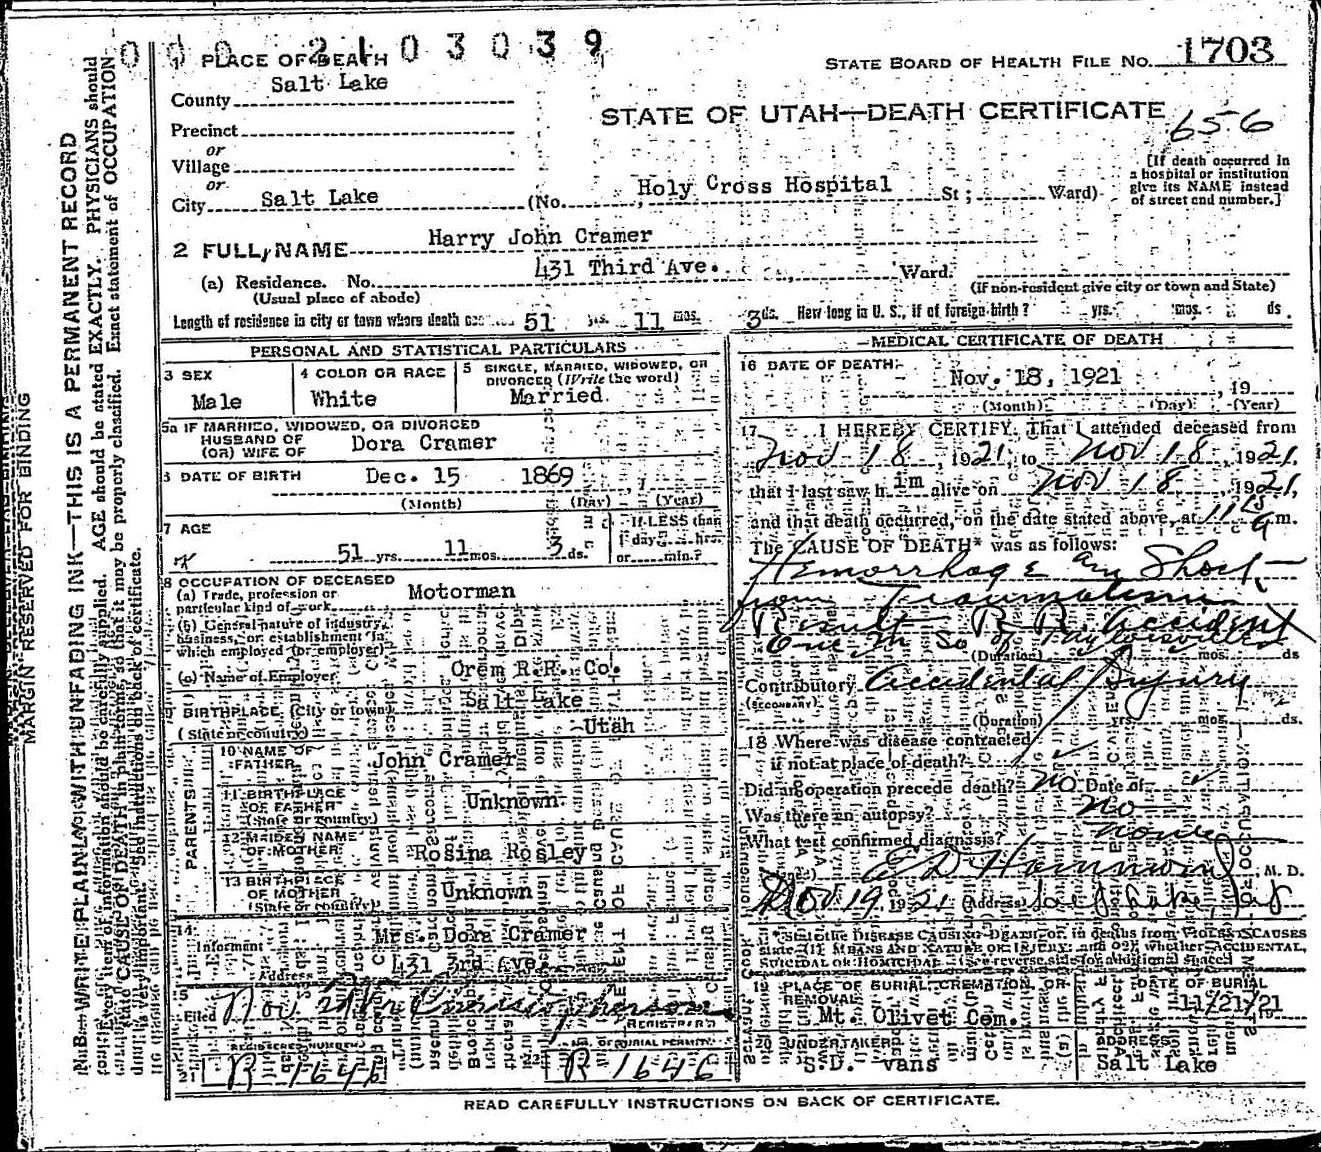 0 0 0 2 1 0 3 0 3 9
1 PLACE OF DEATH
STATE BOARD OF HEALTH FILE No. 1703
County Salt Lake
STATE OF UTAH—DEATH CERTIFICATE
656
Precinct
or
Village
or
City Salt Lake (No. Holy Cross Hospital St; Ward)
[If death occurred in
a hospital or institution
give its NAME instead
of street and number.]
2 FULL NAME Harry John Cramer
(a) Residence. No. 431 Third Ave. Ward.
(Usual place of abode) (If non-resident give city or town and State)
Length of residence in city or town where death 51 yrs. 11 mos. 3 ds. How long in U. S., if of foreign birth? yrs. mos. ds.
PERSONAL AND STATISTICAL PARTICULARS
3 SEX Male
4 COLOR OR RACE White
5 SINGLE, MARRIED, WIDOWED, OR
DIVORCED (Write the word)
Married
5a IF MARRIED, WIDOWED, OR DIVORCED
HUSBAND OF
(OR) WIFE OF Dora Cramer
DATE OF BIRTH Dec. 15 1869
(Month) (Day) (Year)
7 AGE
51 yrs. 11 mos. 3 ds.
If LESS than
1 day hrs.
or min.?
8 OCCUPATION OF DECEASED
(a) Trade, profession or
particular kind of work Motorman
(b) General nature of industry,
business, or establishment in
which employed (or employer)
(c) Name of Employer Orem R.R. Co.
BIRTHPLACE (City or town) Salt Lake
(State or country) Utah
PARENTS
10 NAME OF
FATHER John Cramer
11 BIRTHPLACE
OF FATHER
(State or country) Unknown
12 MAIDEN NAME
OF MOTHER Rosina Rosley
13 BIRTHPLACE
OF MOTHER
(State or country) Unknown
14
Informant Mrs. Dora Cramer
Address 431 3rd Ave.
15
Filed Nov
REGISTRAR
REGISTERED NUMBER
21 R 1646
NO. OF BURIAL PERMIT
R 1646
MEDICAL CERTIFICATE OF DEATH
16 DATE OF DEATH
Nov. 18, 1921 19
(Month) (Day) (Year)
17 I HEREBY CERTIFY, That I attended deceased from
Nov 18, 1921, to Nov 18, 1921,
that I last saw him alive on Nov 18, 1921,
and that death occurred, on the date stated above, at 11 m.
The CAUSE OF DEATH* was as follows:
Hemorrhage and Shock
from Traumatism
Result R R accident
One M So of Taylorsville
(Duration) mos. ds
Contributory Accidental Injury
(SECONDARY)
(Duration) yrs. mos. ds.
18 Where was disease contracted
if not at place of death?
Did an operation precede death? No Date of
Was there an autopsy? No
What test confirmed diagnosis? none
M. D.
Nov 19, 1921 (Address) Salt Lake
*State the DISEASE CAUSING DEATH, or, in deaths from VIOLENT CAUSES
state (1) MEANS AND NATURE OF INJURY; and (2) whether ACCIDENTAL,
SUICIDAL OR HOMICIDAL. (See reverse side for additional space.)
19 PLACE OF BURIAL, CREMATION, OR
REMOVAL
Mt. Olivet Cem.
DATE OF BURIAL
11/21/21
20 UNDERTAKER
S.D. vans
ADDRESS
Salt Lake
READ CAREFULLY INSTRUCTIONS ON BACK OF CERTIFICATE.
MARGIN RESERVED FOR BINDING
N.B.—WRITE PLAINLY WITH UNFADING INK—THIS IS A PERMANENT RECORD
Every item of information should be carefully supplied. AGE should be stated EXACTLY. PHYSICIANS should
state CAUSE OF DEATH in plain terms, so that it may be properly classified. Exact statement of OCCUPATION
is very important. See instructions on back of certificate.